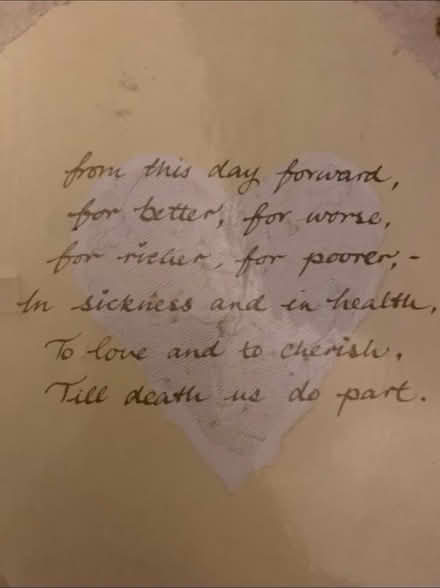 from this day forward,
for better, for worse,
for richer, for poorer, -
In sickness and in health,
To love and to cherish.
Till death us do part.